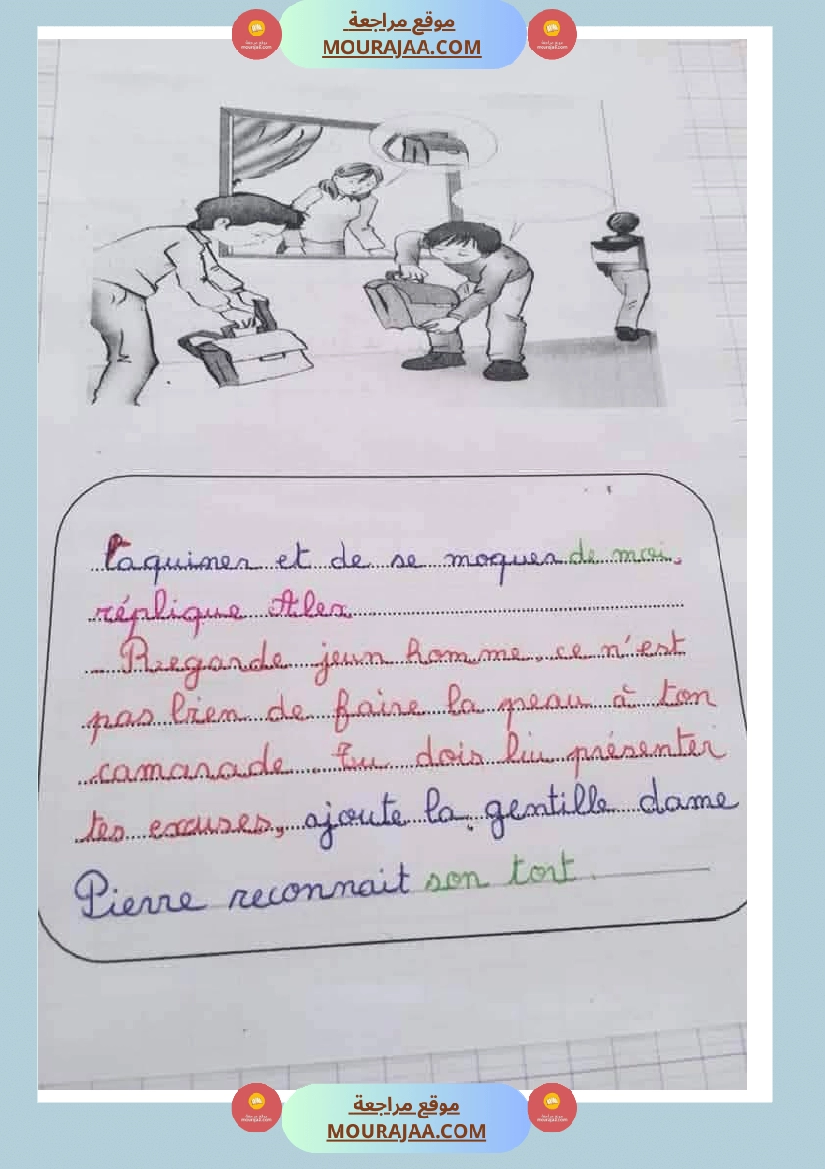 موقع مراجعة
MOURAJAA.COM
taquiner et de se moquer de moi,
réplique Alex
Regarde jeun homme, ce n'est
pas bien de faire la peau à ton
camarade. Tu dois lui présenter
tes excuses, ajoute la gentille dame
Pierre reconnait son tort.
موقع مراجعة
MOURAJAA.COM